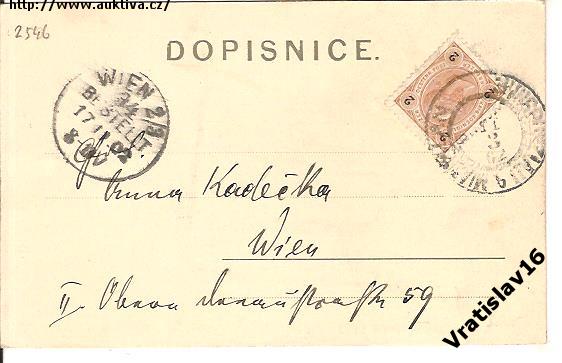 http://www.auktiva.cz/
2546
DOPISNICE.
WIEN 2/3
BESTELLT
Anna Kadečka
Wien
II. Obere Donaustraße 59
Vratislav16